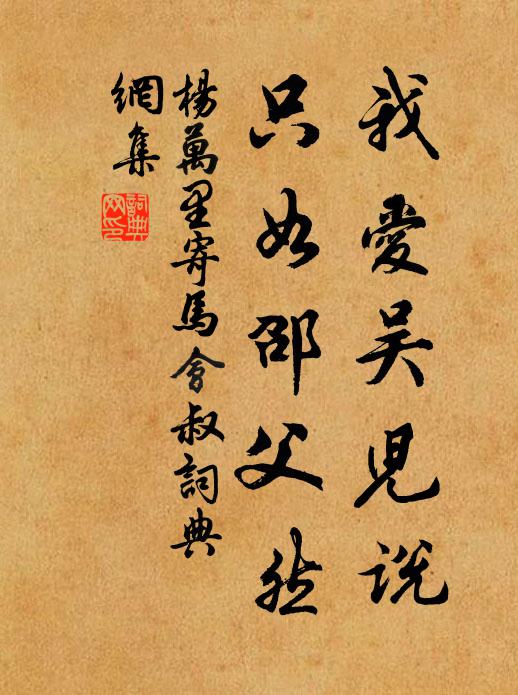 我愛吴児説
只如邵父然
楊萬里寄馬會叔詞典
網集
詞典
网印